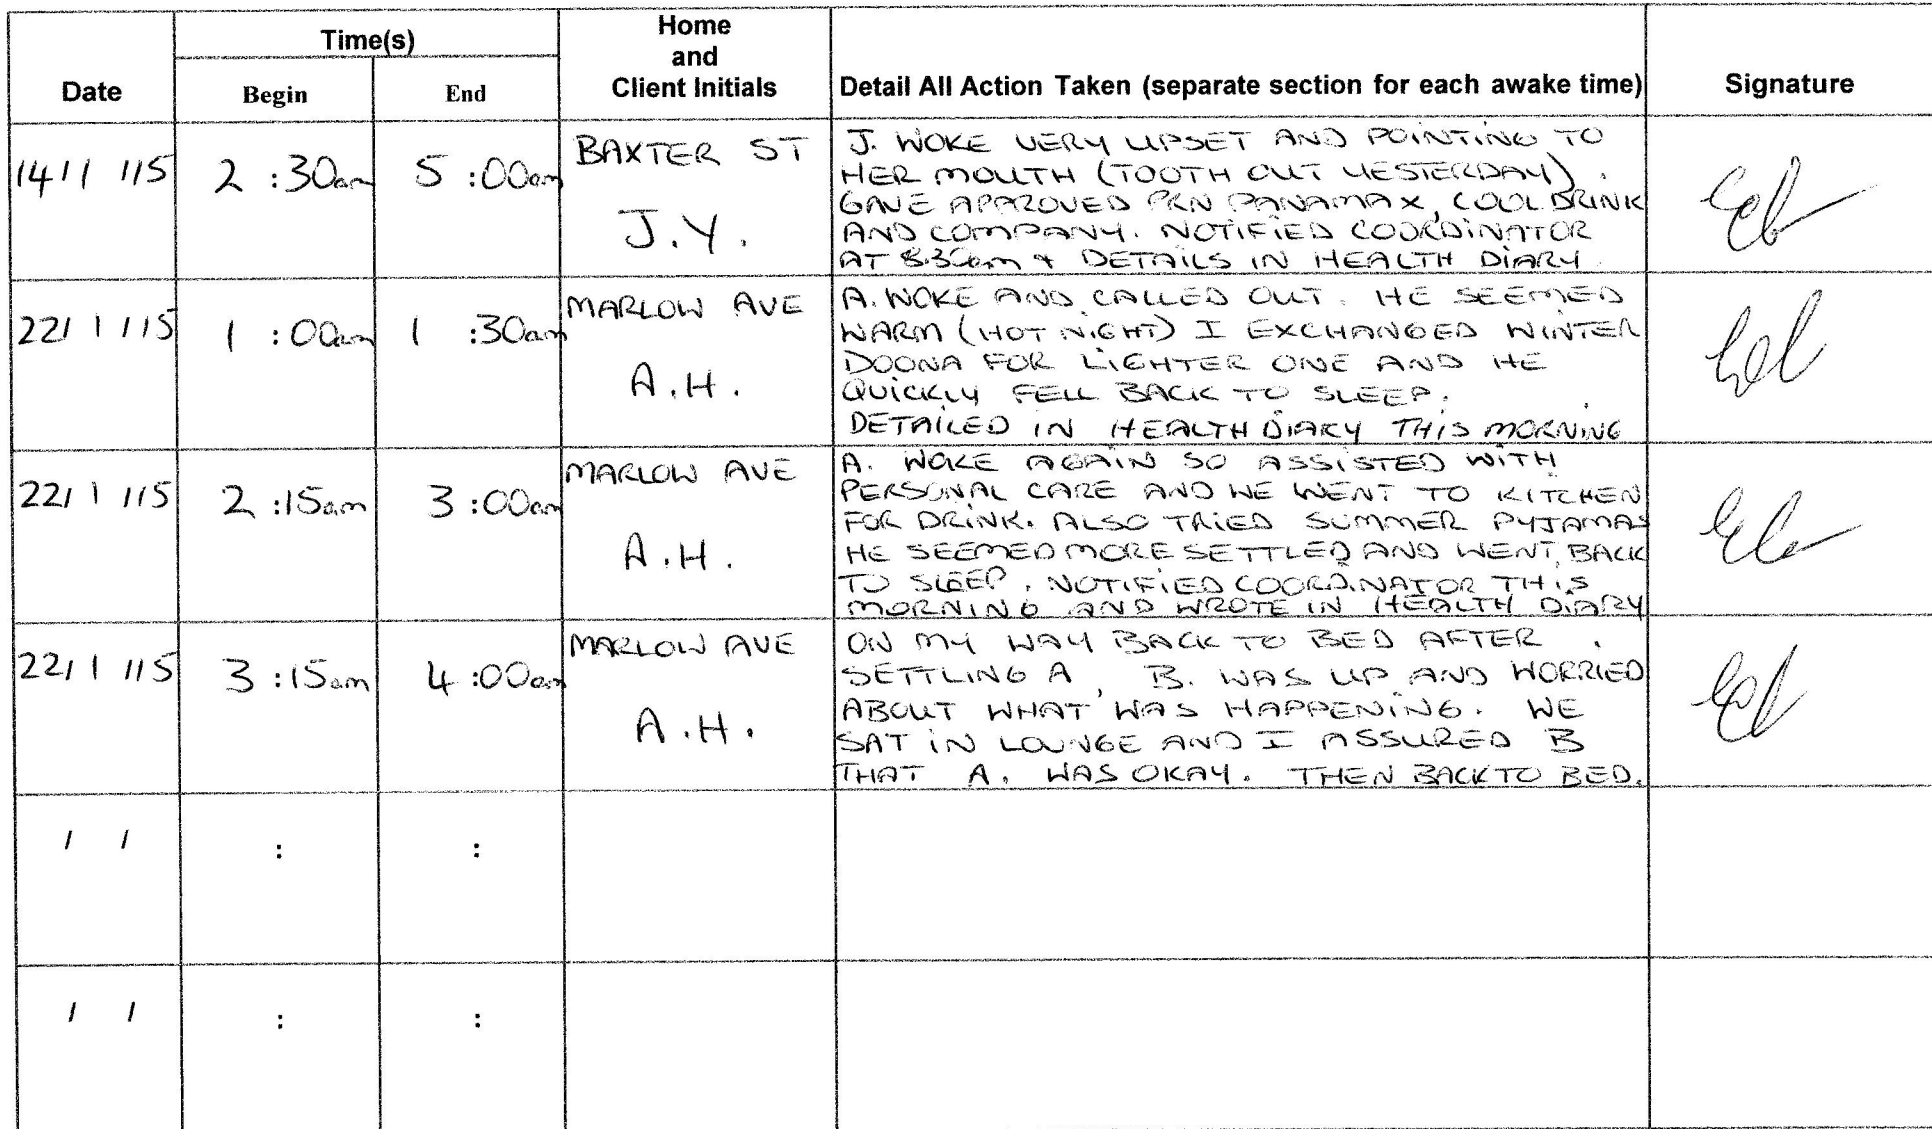 Date
Time(s)
Begin
End
Home
and
Client Initials
Detail All Action Taken (separate section for each awake time)
Signature
14/1/15
2:30am
5:00am
BAXTER ST
J.Y.
J. WOKE VERY UPSET AND POINTING TO
HER MOUTH (TOOTH OUT YESTERDAY).
GAVE APPROVED PRN PANAMAX, COOL DRINK
AND COMPANY. NOTIFIED COORDINATOR
AT 8:30am + DETAILS IN HEALTH DIARY.
22/1/15
1:00am
1:30am
MARLOW AVE
A.H.
A. WOKE AND CALLED OUT. HE SEEMED
WARM (HOT NIGHT) I EXCHANGED WINTER
DOONA FOR LIGHTER ONE AND HE
QUICKLY FELL BACK TO SLEEP.
DETAILED IN HEALTH DIARY THIS MORNING
22/1/15
2:15am
3:00am
MARLOW AVE
A.H.
A. WOKE AGAIN SO ASSISTED WITH
PERSONAL CARE AND WE WENT TO KITCHEN
FOR DRINK. ALSO TRIED SUMMER PYJAMAS
HE SEEMED MORE SETTLED AND WENT BACK
TO SLEEP. NOTIFIED COORDINATOR THIS
MORNING AND WROTE IN HEALTH DIARY
22/1/15
3:15am
4:00am
MARLOW AVE
A.H.
ON MY WAY BACK TO BED AFTER
SETTLING A, B. WAS UP AND WORRIED
ABOUT WHAT WAS HAPPENING. WE
SAT IN LOUNGE AND I ASSURED B
THAT A. WAS OKAY. THEN BACK TO BED.
/ /
:
:
/ /
:
: